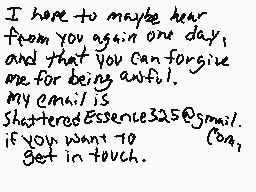 I hope to maybe hear
from you again one day,
and that you can forgive
me for being awful.
My email is
ShatteredEssence325@gmail.
com,
if you want to
get in touch.